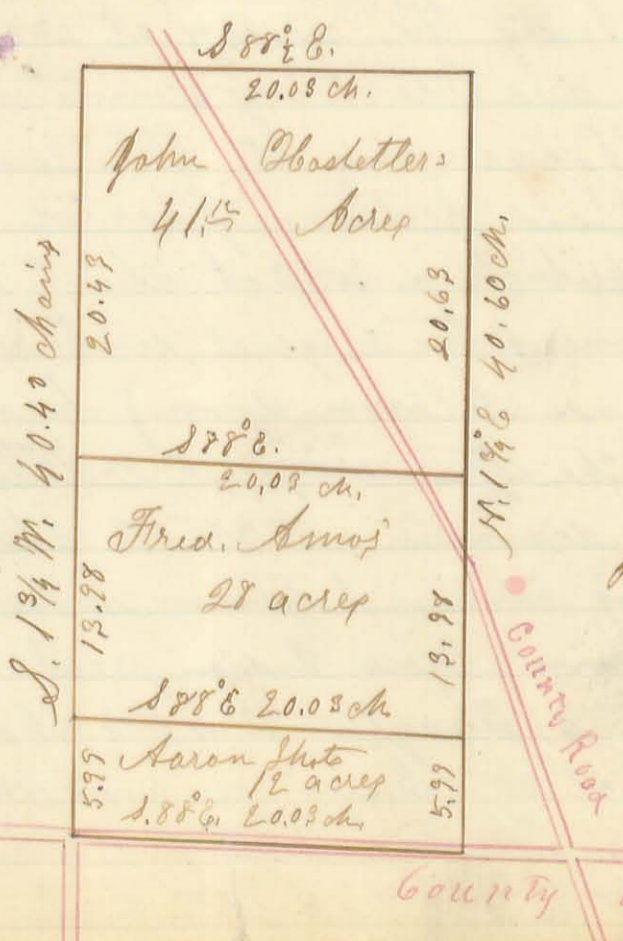 S 88°½ E.
20.03 ch.
John Hostetlers
41.15 Acres
20.43
20.63
S. 1¾ W. 40.40 chains
N. 1¾° E 40.60 ch.
S 88° E.
20,03 ch.
Fred. Amos
28 acres
13.98
13.98
S 88° E 20.03 ch
Aaron
12 acres
5.99
5.99
S. 88° E. 20.03 ch.
County Road
County